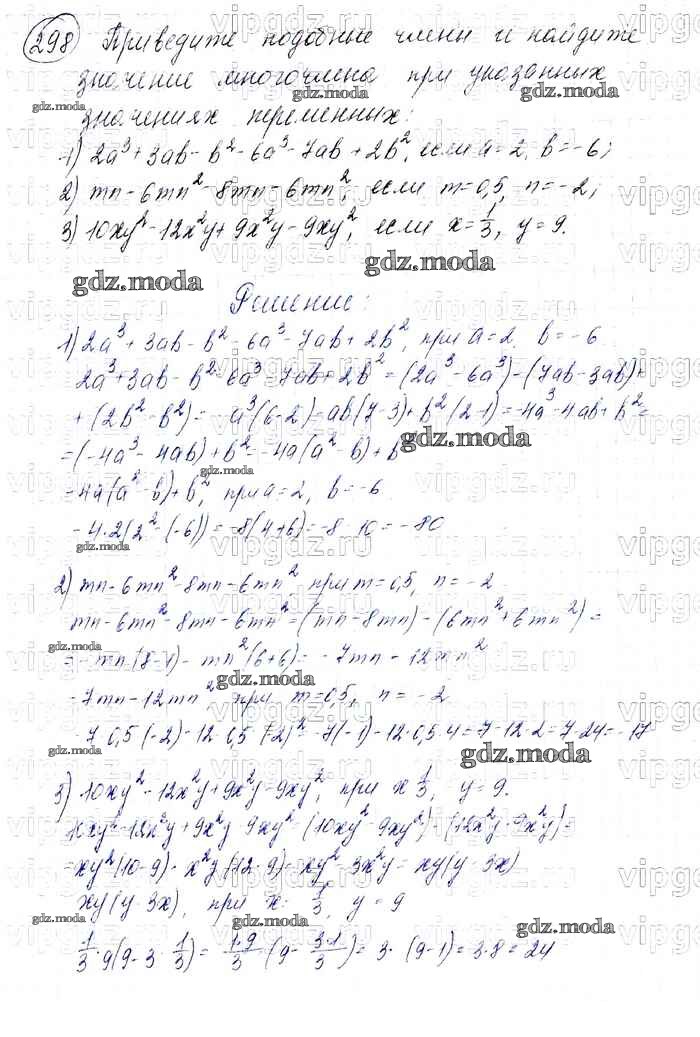 298 Приведите подобные члены и найдите
значение многочлена при указанных
значениях переменных:
1) 2a³+3ab-b²-6a³-7ab+2b², если a=2, b=-6;
2) mn-6mn²-8mn-6mn², если m=0,5, n=-2;
3) 10xy²-12x²y+9x²y-9xy², если x=1/3, y=9.
gdz.moda
Решение:
1) 2a³+3ab-b²-6a³-7ab+2b², при a=2, b=-6
2a³+3ab-b²-6a³-7ab+2b²=(2a³-6a³)-(7ab-3ab)+
+(2b²-b²)=-a³(6-2)-ab(7-3)+b²(2-1)=-4a³-4ab+b²=
=(-4a³-4ab)+b²=-4a(a²-b)+b
-4a(a²-b)+b², при a=2, b=-6
-4·2(2²-(-6))=-8(4+6)=-8·10=-80
2) mn-6mn²-8mn-6mn² при m=0,5, n=-2
mn-6mn²-8mn-6mn²=(mn-8mn)-(6mn²+6mn²)=
=-mn(8-1)-mn²(6+6)=-7mn-12mn²
-7mn-12mn², при m=0,5, n=-2
-7·0,5(-2)-12·0,5(-2)²=-7(-1)-12·0,5·4=7-12·2=7-24=-17
3) 10xy²-12x²y+9x²y-9xy², при x 1/3, y=9.
10xy²-12x²y+9x²y-9xy²=(10xy²-9xy²)-(12x²y-9x²y)=
=xy²(10-9)-x²y(12-9)=xy²-3x²y=xy(y-3x)
xy(y-3x), при x=1/3, y=9
1/3·9(9-3·1/3)=1·9/3(9-3·1/3)=3·(9-1)=3·8=24